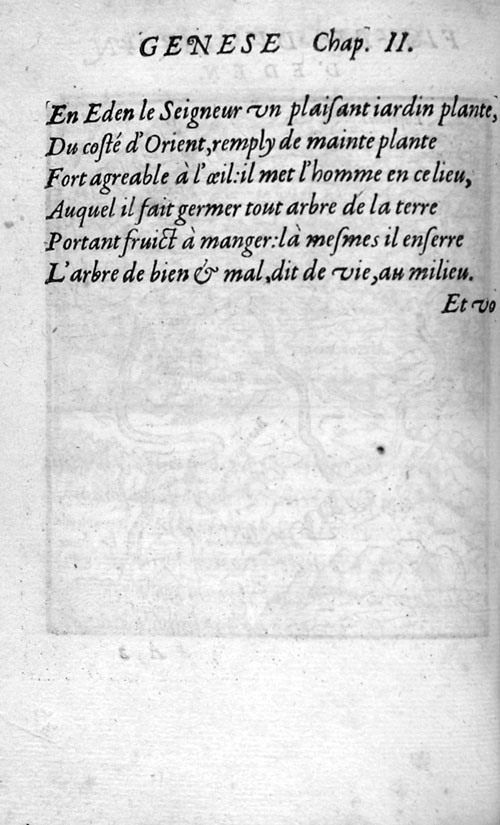 GENESE Chap. II.
En Eden le Seigneur vn plaiſant iardin plante,
Du coſté d'Orient, remply de mainte plante
Fort agreable à l'œil: il met l'homme en ce lieu,
Auquel il fait germer tout arbre de la terre
Portant fruict à manger: là meſmes il enſerre
L'arbre de bien & mal, dit de vie, au milieu.
Et vo